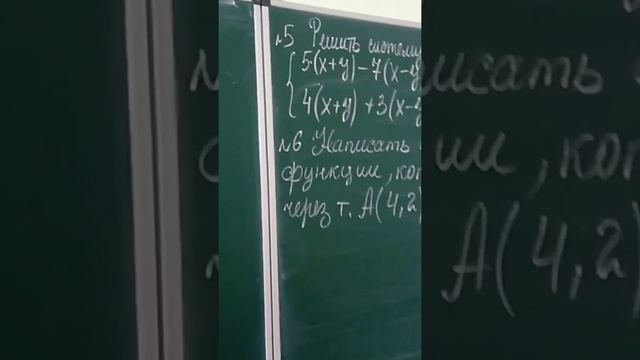 №5 Решить систему
5(x+y)-7(x-y
4(x+y)+3(x-y
№6 Написать
функции, кот
через т. A(4,2)